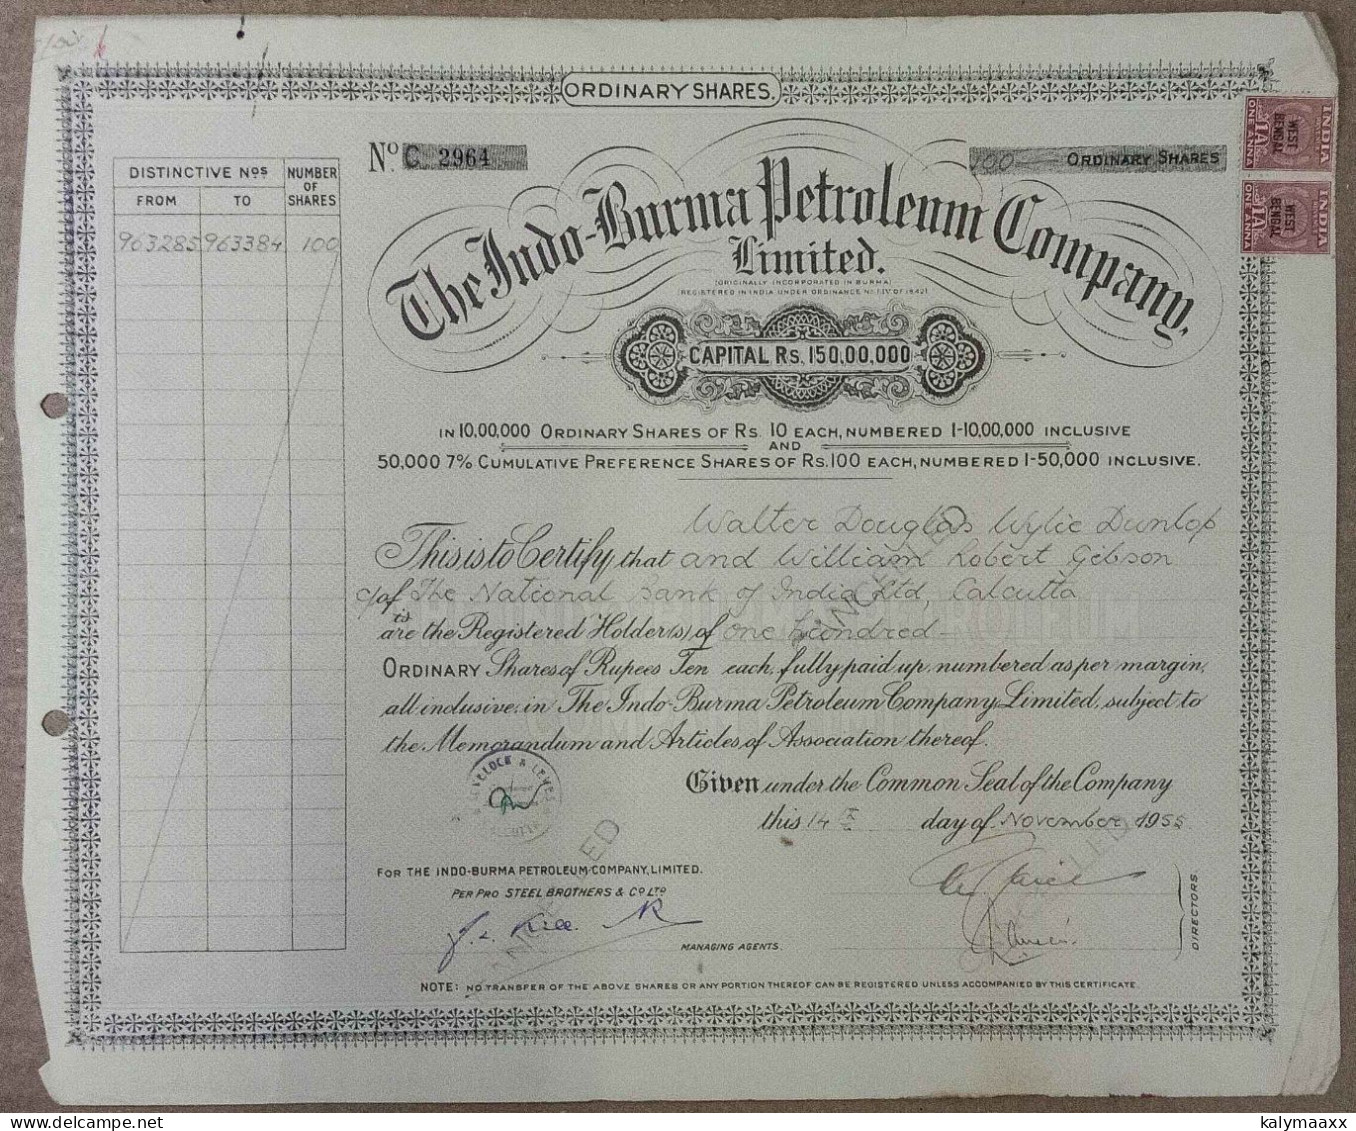 ORDINARY SHARES.
No. C 2964
100 ORDINARY SHARES
INDIA
1A
ONE ANNA
WEST BENGAL
INDIA
1A
ONE ANNA
WEST BENGAL
DISTINCTIVE Nos
NUMBER OF SHARES
FROM TO
963285 963384 100
The Indo-Burma Petroleum Company,
Limited.
(ORIGINALLY INCORPORATED IN BURMA)
CAPITAL Rs. 150,00,000
IN 10,00,000 ORDINARY SHARES OF Rs. 10 EACH, NUMBERED 1-10,00,000 INCLUSIVE
AND
50,000 7% CUMULATIVE PREFERENCE SHARES OF Rs. 100 EACH, NUMBERED 1-50,000 INCLUSIVE.
Walter Douglas Wylie Dunlop
This is to Certify that and William Robert Gibson
c/o of The National Bank of India Ltd, Calcutta
is
are the Registered Holder(s) of One hundred
ORDINARY Shares of Rupees Ten each, fully paid up, numbered as per margin,
all inclusive, in The Indo-Burma Petroleum Company, Limited, subject to
the Memorandum and Articles of Association thereof.
Given under the Common Seal of the Company
this 14th day of November 1955
CANCELLED
FOR THE INDO-BURMA PETROLEUM COMPANY, LIMITED.
PER PRO STEEL BROTHERS & CO LTD
MANAGING AGENTS.
DIRECTORS
CANCELLED
CANCELLED
NOTE: NO TRANSFER OF THE ABOVE SHARES OR ANY PORTION THEREOF CAN BE REGISTERED UNLESS ACCOMPANIED BY THIS CERTIFICATE.
kalymaaxx